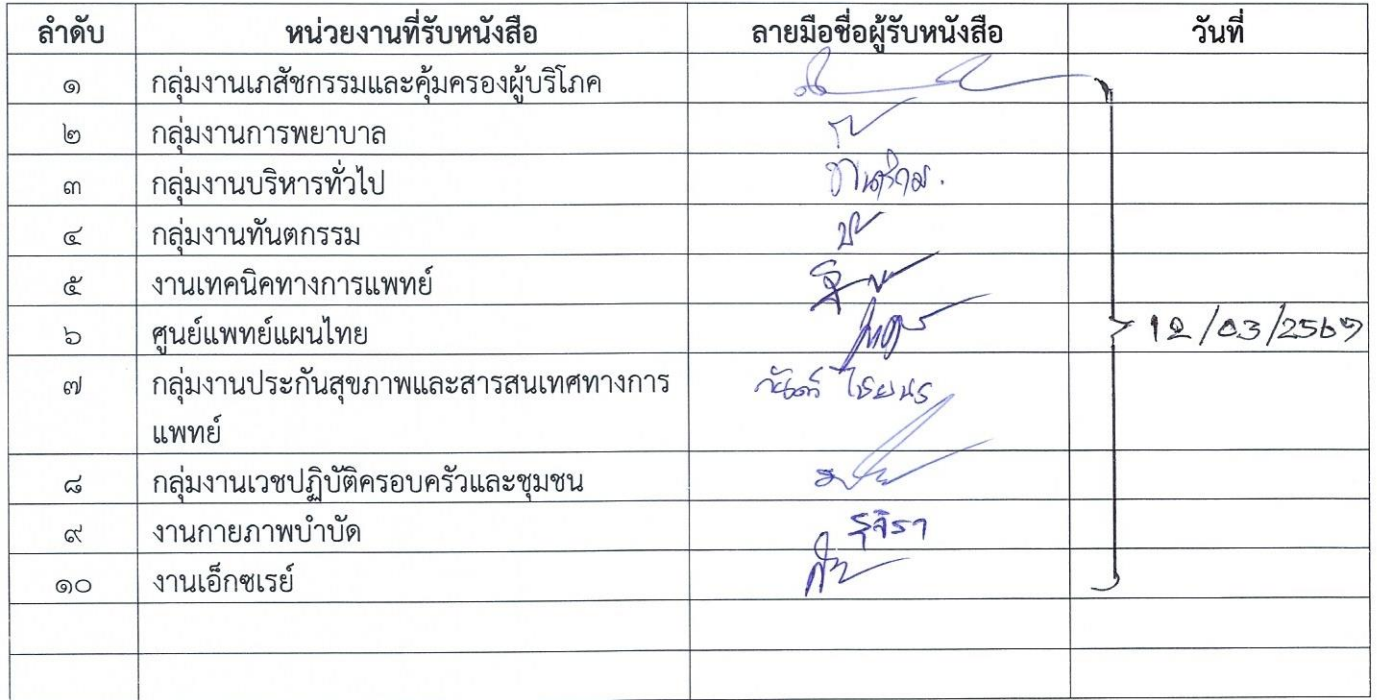 ลำดับ หน่วยงานที่รับหนังสือ ลายมือชื่อผู้รับหนังสือ วันที่
๑ กลุ่มงานเภสัชกรรมและคุ้มครองผู้บริโภค
๒ กลุ่มงานการพยาบาล
๓ กลุ่มงานบริหารทั่วไป
๔ กลุ่มงานทันตกรรม
๕ งานเทคนิคทางการแพทย์
๖ ศูนย์แพทย์แผนไทย 12/03/2567
๗ กลุ่มงานประกันสุขภาพและสารสนเทศทางการ
แพทย์
๘ กลุ่มงานเวชปฏิบัติครอบครัวและชุมชน
๙ งานกายภาพบำบัด รุจิรา
๑๐ งานเอ็กซเรย์